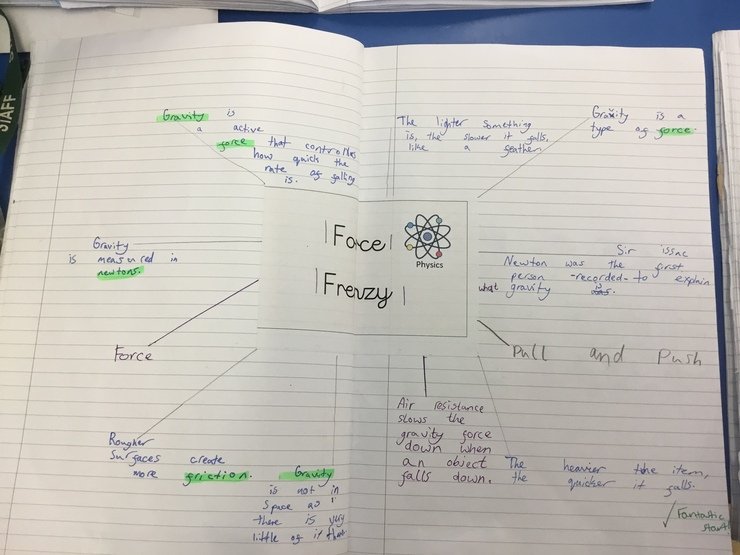 STAFF
Gravity is
a active
force that controlles
how quick the
rate of falling
is.
The lighter something
is, the slower it falls,
like a feather.
Gravity is a
type of force.
Force
Frenzy
Physics
Gravity
is measured in
newtons.
Sir issac
Newton was the first
person -recorded- to explain
what gravity is
Force
Pull and Push
Rougher
Surfaces create
more friction.
Gravity
is not in
Space as
there is very
little of it there.
Air resistance
slows the
gravity force
down when
an object
falls down.
The heavier the item,
the quicker it falls.
Fantastic
start!